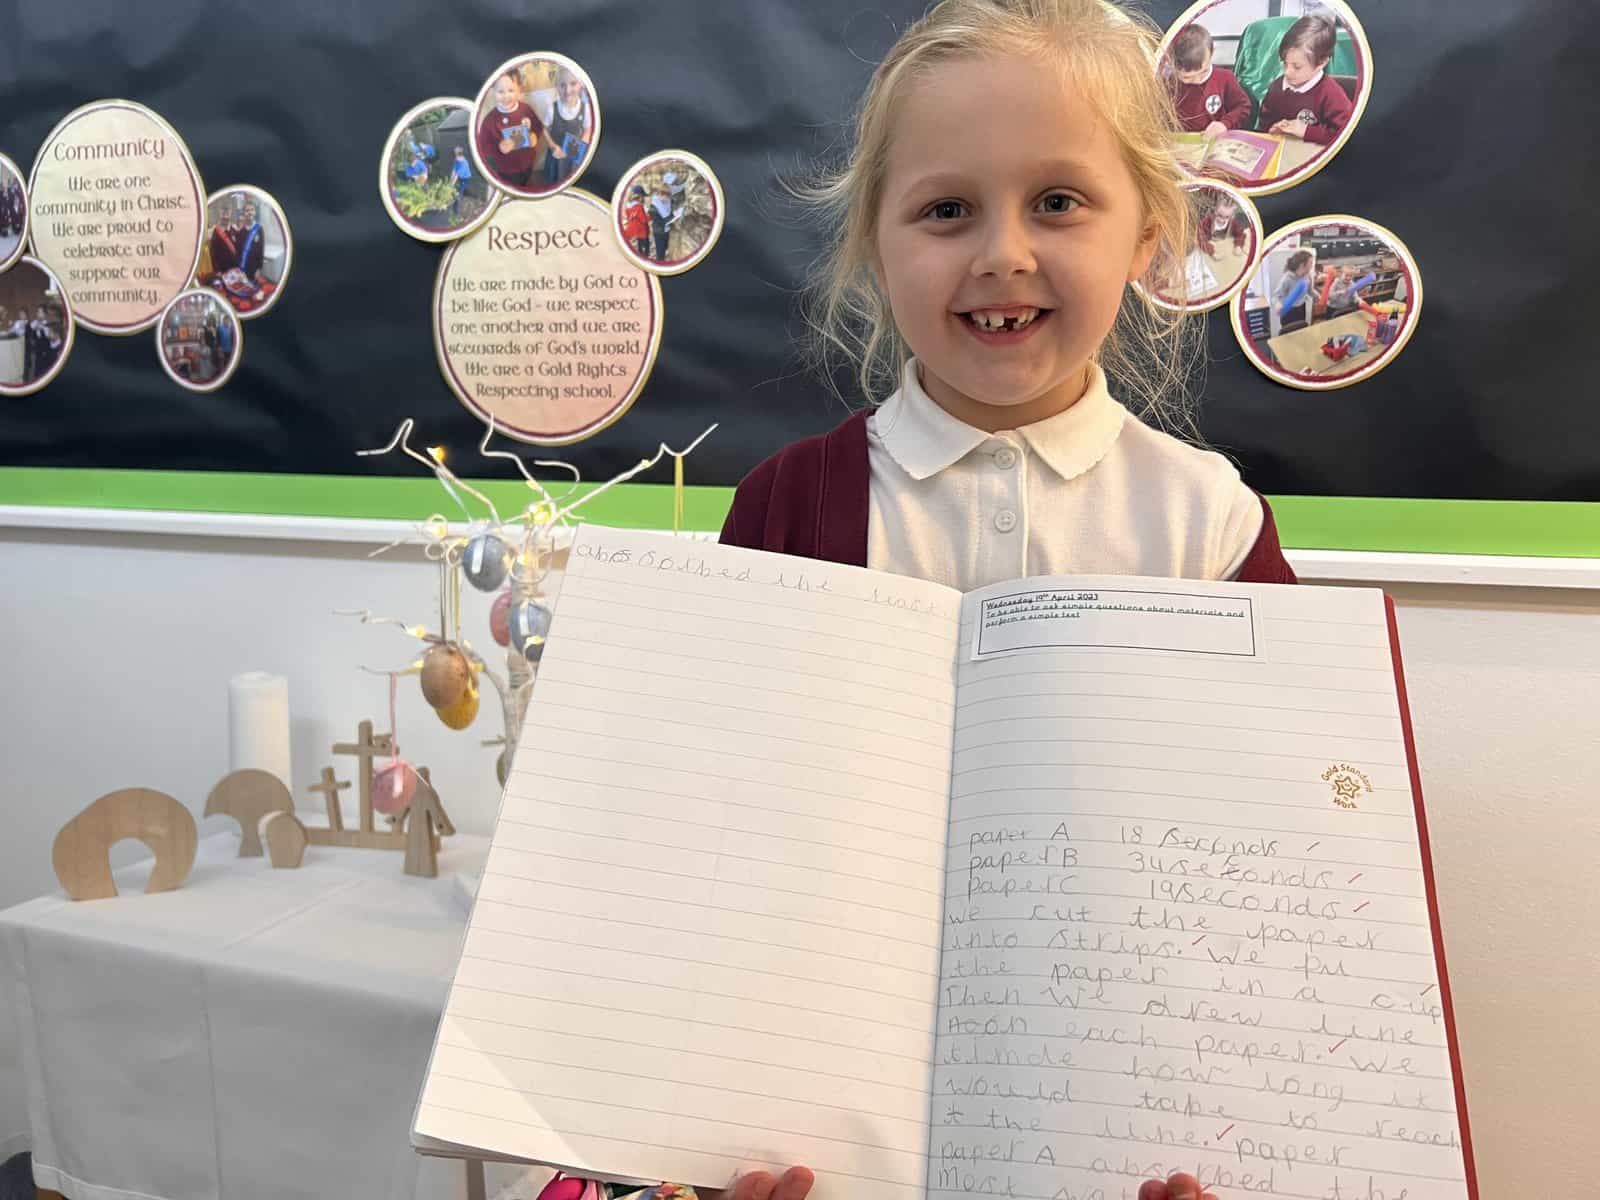 Community
We are one
community in Christ.
We are proud to
celebrate and
support our
community.
Respect
We are made by God to
be like God - we respect
one another and we are
stewards of God's world.
We are a Gold Rights
Respecting school.
the least.
Wednesday 19th April 2023
To be able to ask simple questions about materials and
perform a simple test
Gold Standard
Work
paper A 18 seconds
paper B 34 seconds
paper C 19 seconds
we cut the paper
into strips. We pu
the paper in a cup
Then we drew line
on each paper. We
timde how long it
would take to reach
t the line. paper
paper A absorbed the
Most